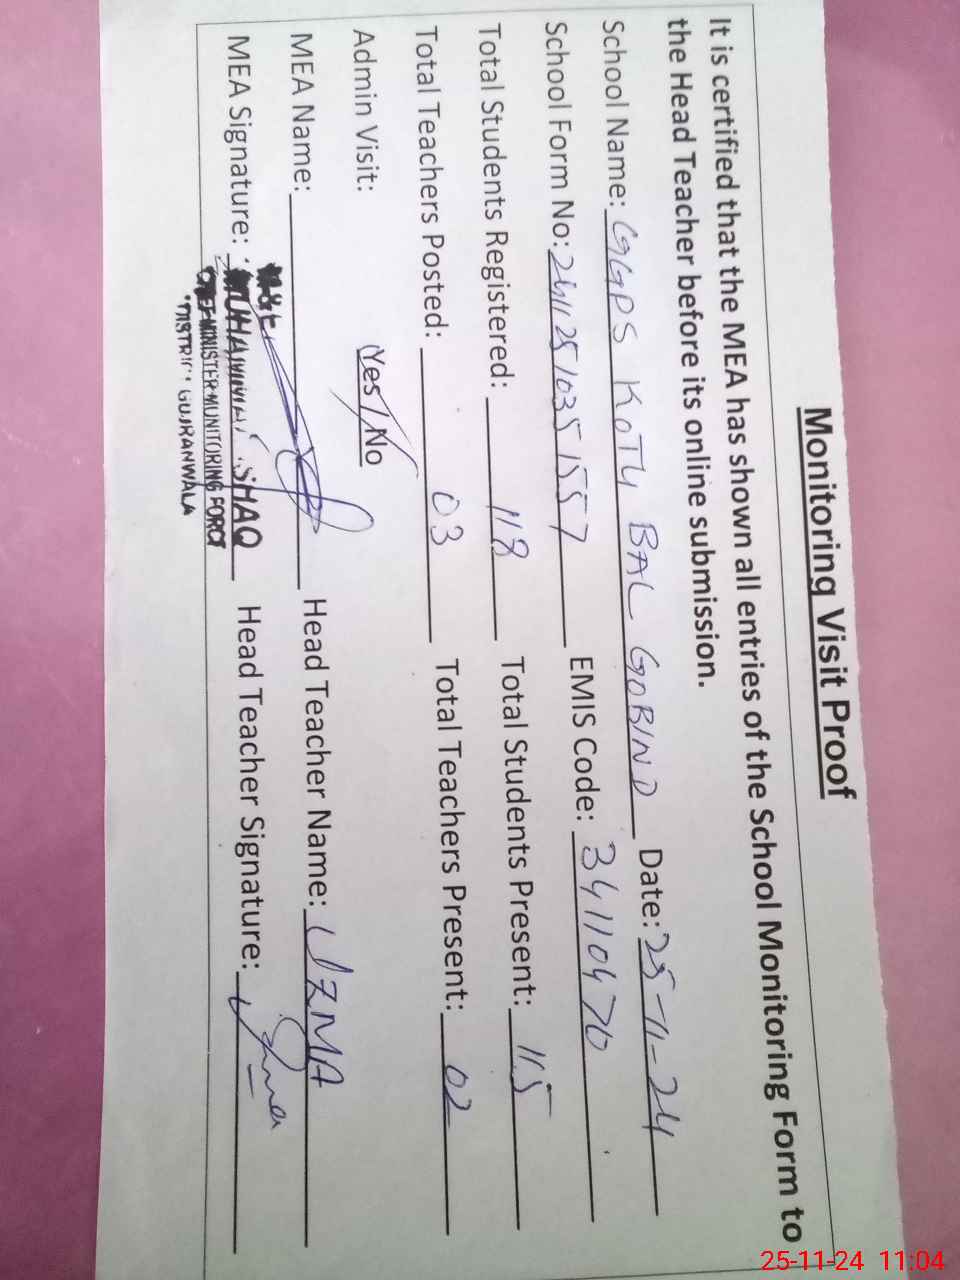 Monitoring Visit Proof
It is certified that the MEA has shown all entries of the School Monitoring Form to
the Head Teacher before its online submission.
School Name: GGPS KOTLI BAL GOBIND Date: 25-11-24
School Form No: 24112510351557 EMIS Code: 34110470
Total Students Registered: 118 Total Students Present: 115
Total Teachers Posted: 03 Total Teachers Present: 02
Admin Visit: Yes / No
MEA Name: Head Teacher Name: UZMA
MEA Signature: Head Teacher Signature: Uzma
CHIEF MINISTER MONITORING FORCE
DISTRICT GUJRANWALA
25-11-24 11:04